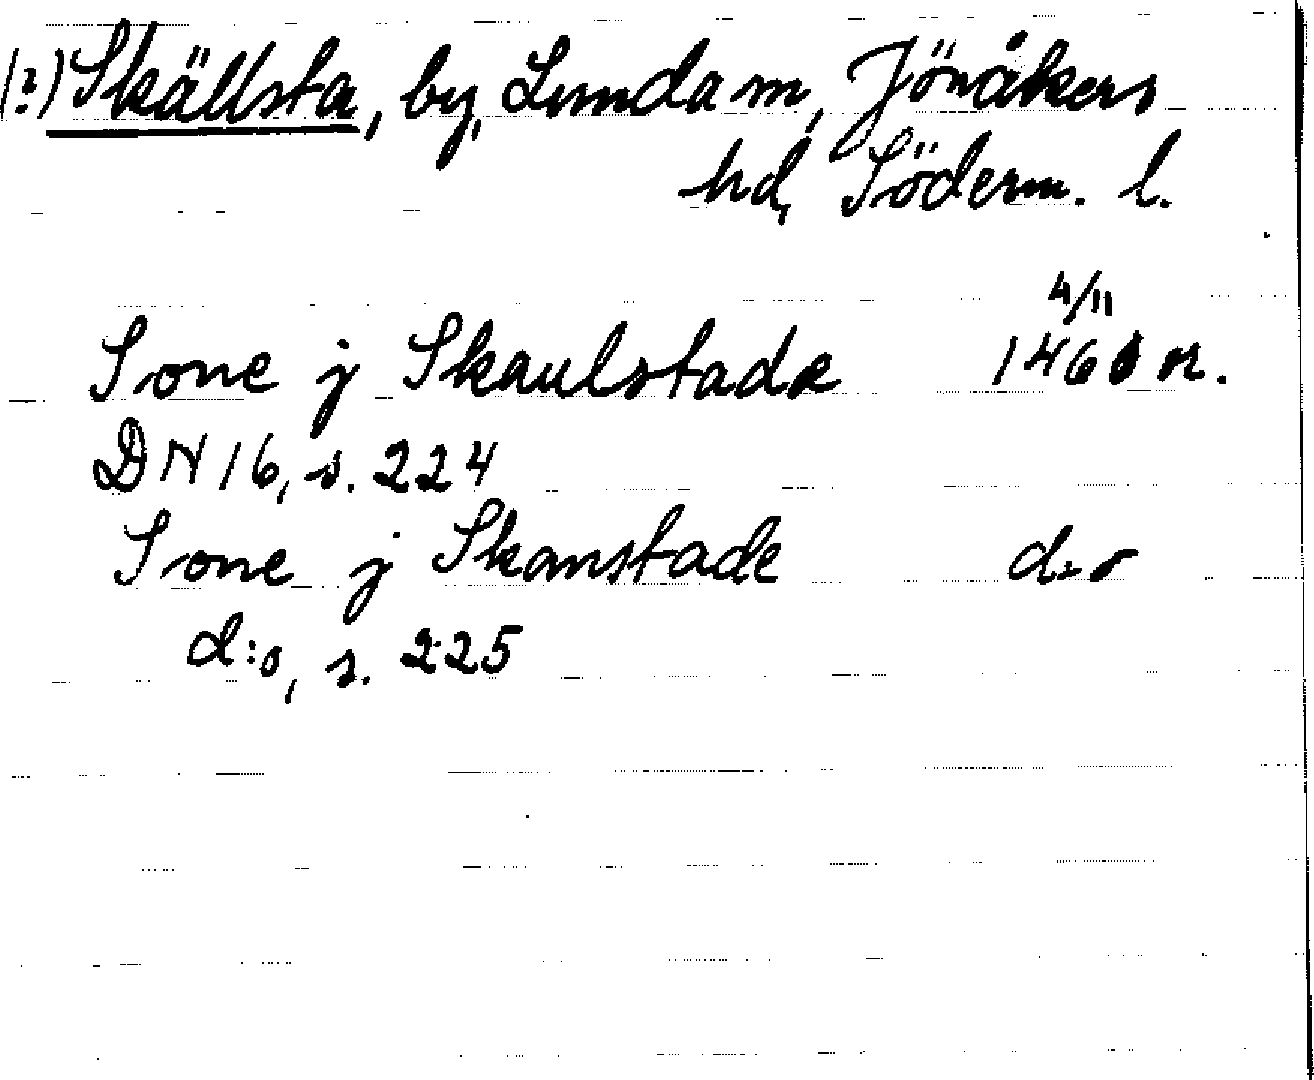 (?) Skällsta, by, Lunda sn, Jönåkers
hd, Söderm. l.
4/11
Sone j Skaulstade 1460 or.
DN 16, s. 224
Sone j Skamstade d:o
d:o, s. 225